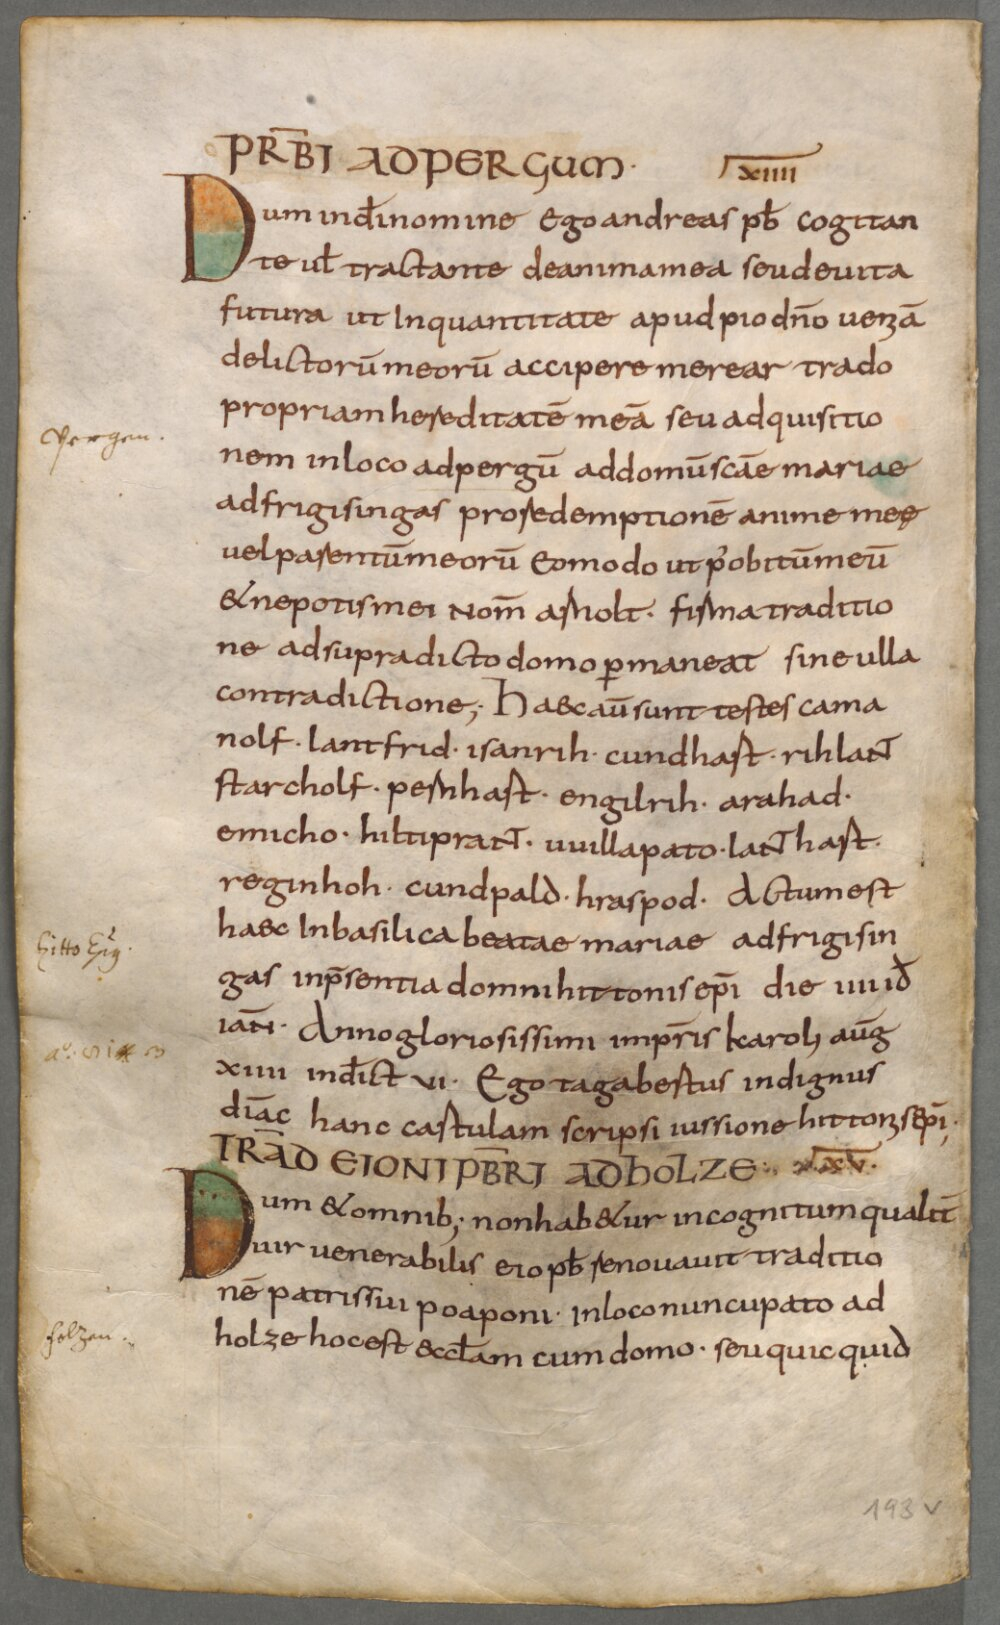 PR̄BI ADPERGUM· XIIII
Dum in dī nomine Ego andreas pƀ cogitan
te uł tractante de anima mea seu de uita
futura ut In quantitate apud pio dn̄o ueniā
delictorū meorū accipere merear trado
propriam hereditatē meā seu adquisitio
nem in loco ad pergū ad domū sc̄ae mariae
ad frigisingas pro redemptionē anime meę
uel parentūmeorū Eo modo ut p̄ obitū meū
& nepotis mei nom̄ arnolt· firma traditio
ne ad supradicto domo ꝑmaneat sine ulla
contradictione; Haec aū sunt testes cama
nolf· lantfrid· isanrih· cundhart· rihlant
starcholf· pernhart· engilrih· arahad·
emicho· hiltiprant· uuillapato· lanthart·
reginhoh· cundpald· hraspod· Actum est
haec In basilica beatae mariae ad frigisin
gas in p̄sentia domni hittonis ep̄i die iiii iđ
ian̄· Anno gloriosissimi imp̄ris karoli aūg
xiiii indīct vi· Ego tagabertus indignus
diāc hanc cartulam scripsi iussione hittonis ep̄i;
TRĀD EIONI PB̄RI AD HOLZE· XV·
Dum & omnib; non hab&ur incognitum qualit̄
uir uenerabilis eio pƀ renouauit traditio
nē patris sui poaponi· in loco nuncupato ad
holze hoc est eccłam cum domo· seu quicquid
Pergen.
hitto
holzen.
193 v